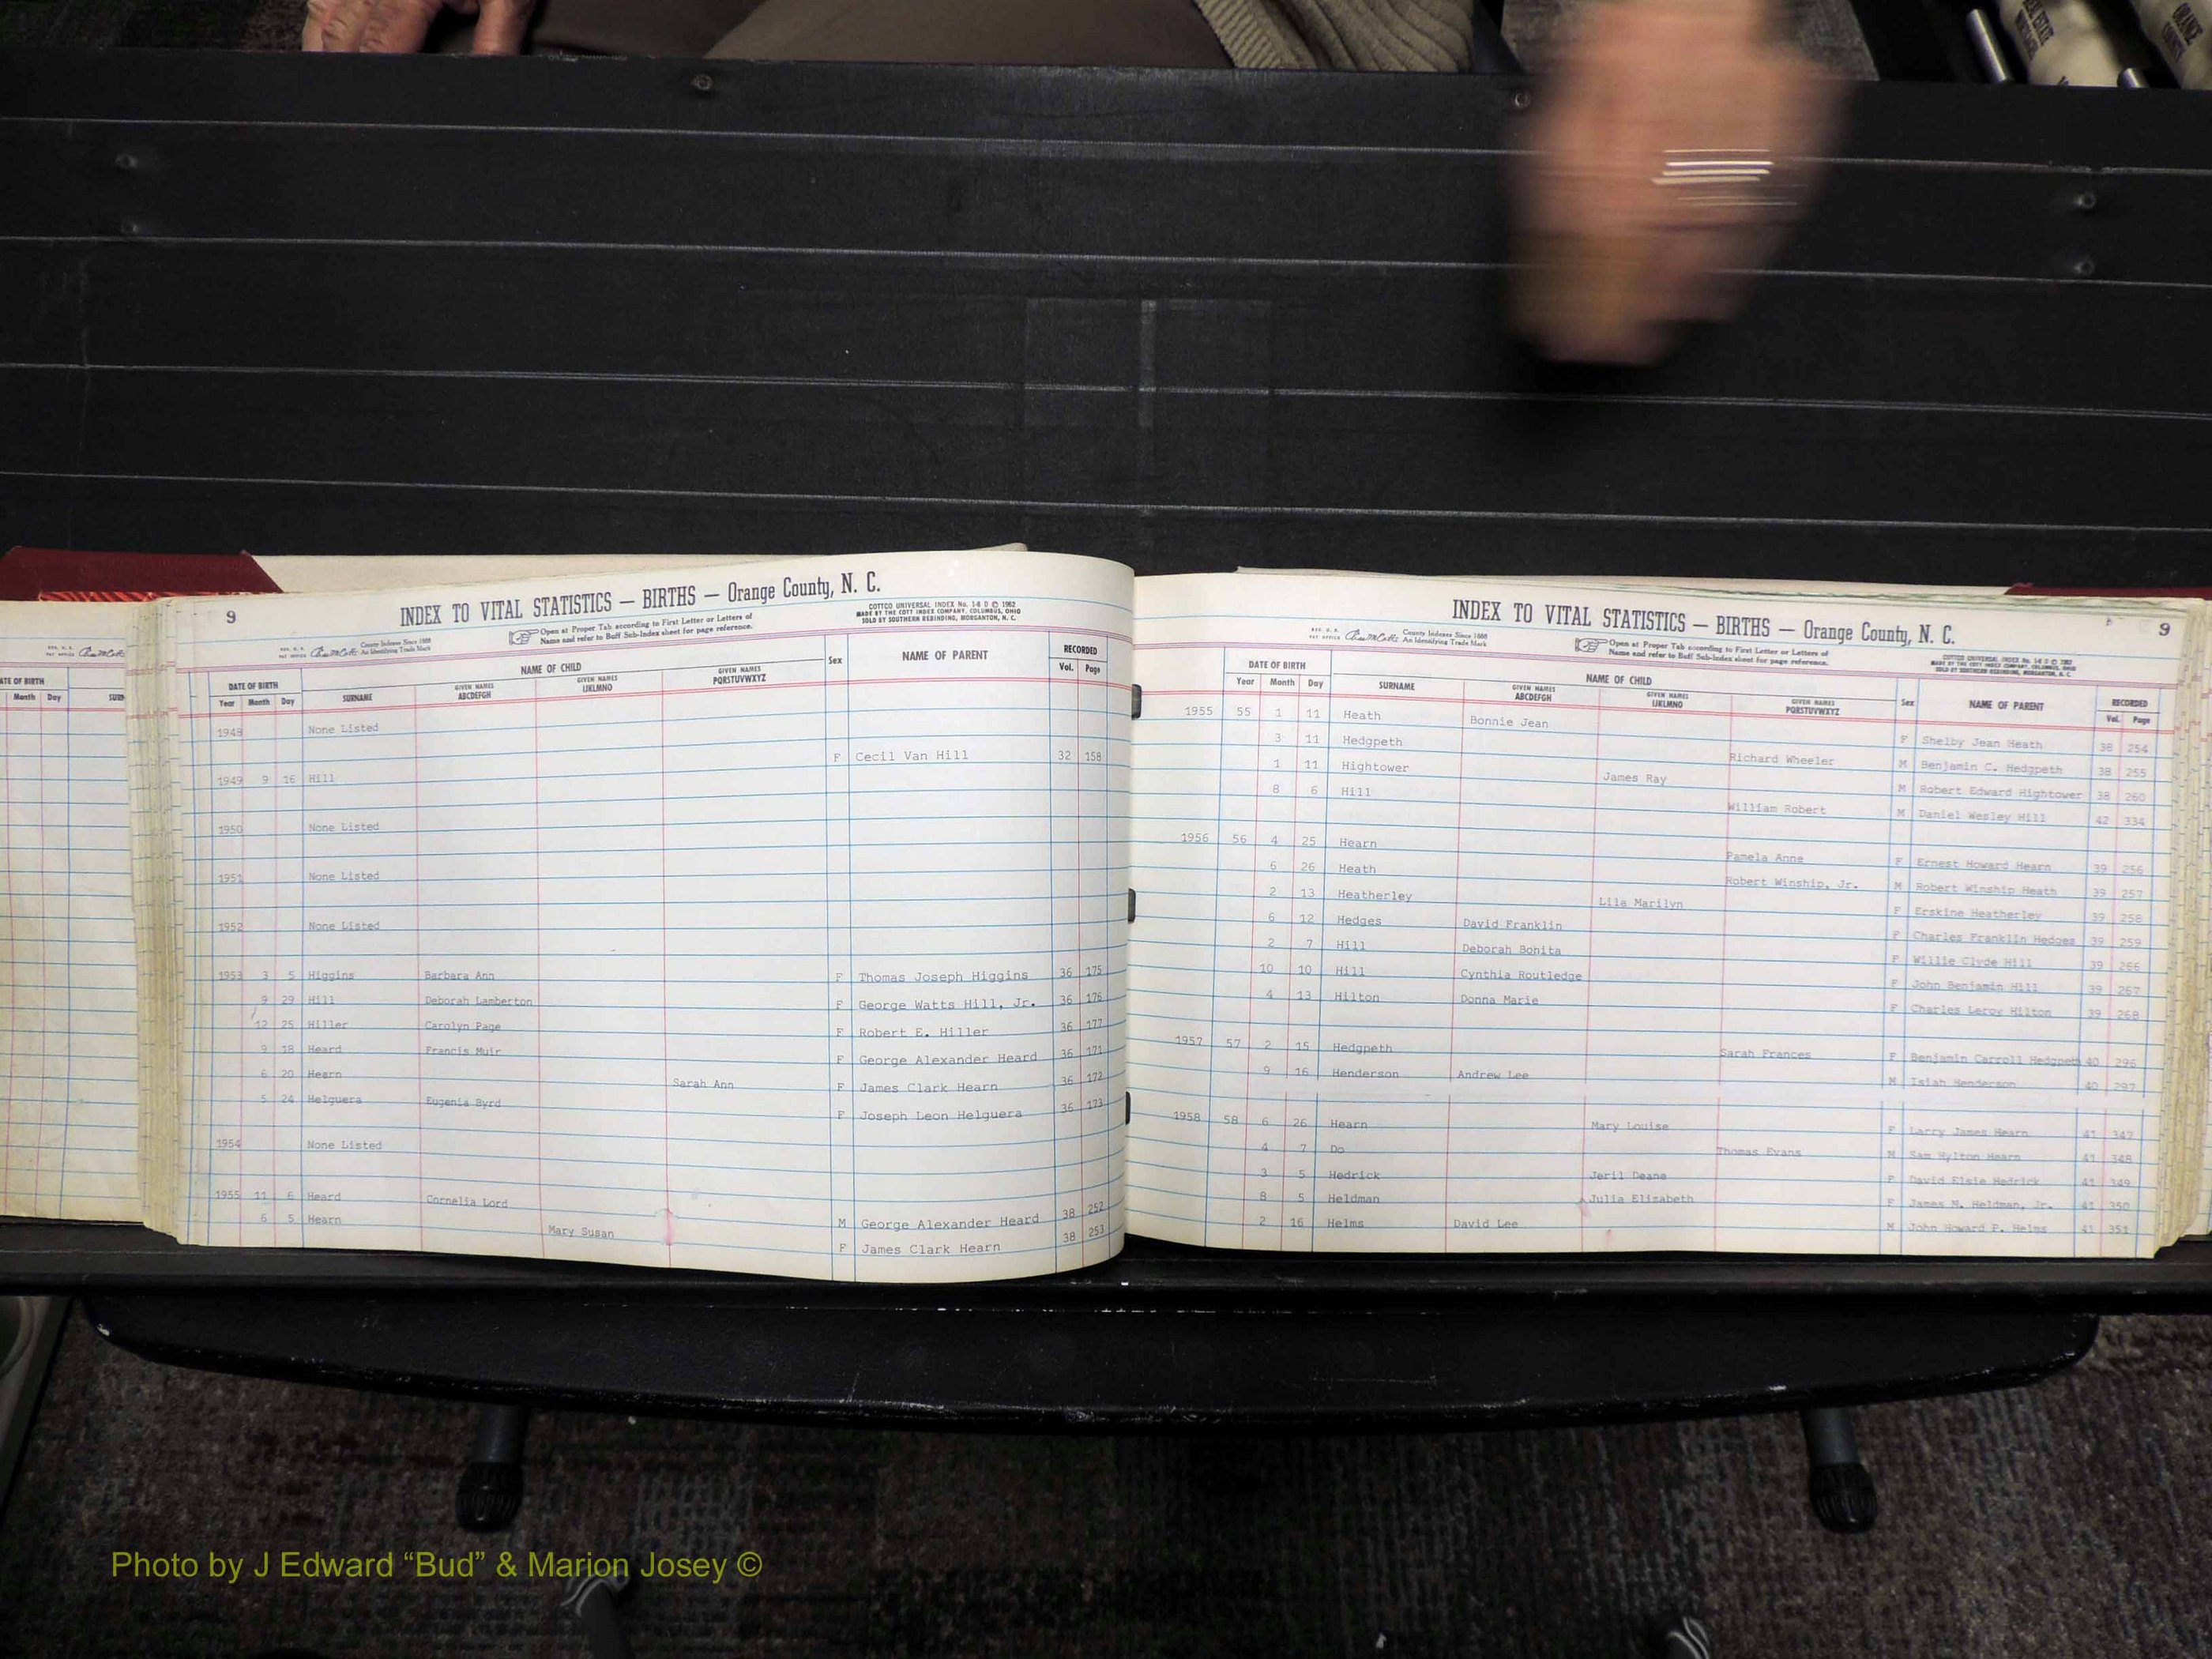 REAL ESTATE
ORANGE
ATE OF BIRTH
Month Day SURN
9
INDEX TO VITAL STATISTICS — BIRTHS — Orange County, N. C.
County Indexes Since 1888
An Identifying Trade Mark
Open at Proper Tab according to First Letter or Letters of
Name and refer to Buff Sub-Index sheet for page reference.
COTTCO UNIVERSAL INDEX No. 1-8 D © 1962
MADE BY THE COTT INDEX COMPANY, COLUMBUS, OHIO
SOLD BY SOUTHERN REBINDING, MORGANTON, N. C.
DATE OF BIRTH NAME OF CHILD Sex NAME OF PARENT RECORDED
Year Month Day SURNAME GIVEN NAMES ABCDEFGH GIVEN NAMES IJKLMNO GIVEN NAMES PQRSTUVWXYZ Vol. Page
1948 None Listed
1949 9 16 Hill F Cecil Van Hill 32 158
1950 None Listed
1951 None Listed
1952 None Listed
1953 3 5 Higgins Barbara Ann F Thomas Joseph Higgins 36 175
9 29 Hill Deborah Lamberton F George Watts Hill, Jr. 36 176
12 25 Hiller Carolyn Page F Robert E. Hiller 36 177
9 18 Heard Francis Muir F George Alexander Heard 36 171
6 20 Hearn Sarah Ann F James Clark Hearn 36 172
5 24 Helguera Eugenia Byrd F Joseph Leon Helguera 36 173
1954 None Listed
1955 11 6 Heard Cornelia Lord M George Alexander Heard 38 252
6 5 Hearn Mary Susan F James Clark Hearn 38 253
INDEX TO VITAL STATISTICS — BIRTHS — Orange County, N. C.
9
County Indexes Since 1888
An Identifying Trade Mark
Open at Proper Tab according to First Letter or Letters of
Name and refer to Buff Sub-Index sheet for page reference.
COTTCO UNIVERSAL INDEX No. 1-8 D © 1962
MADE BY THE COTT INDEX COMPANY, COLUMBUS, OHIO
SOLD BY SOUTHERN REBINDING, MORGANTON, N. C.
DATE OF BIRTH NAME OF CHILD Sex NAME OF PARENT RECORDED
Year Month Day SURNAME GIVEN NAMES ABCDEFGH GIVEN NAMES IJKLMNO GIVEN NAMES PQRSTUVWXYZ Vol. Page
1955 55 1 11 Heath Bonnie Jean F Shelby Jean Heath 38 254
3 11 Hedgpeth Richard Wheeler M Benjamin C. Hedgpeth 38 255
1 11 Hightower James Ray M Robert Edward Hightower 38 260
8 6 Hill William Robert M Daniel Wesley Hill 42 334
1956 56 4 25 Hearn Pamela Anne F Ernest Howard Hearn 39 256
6 26 Heath Robert Winship, Jr. M Robert Winship Heath 39 257
2 13 Heatherley Lila Marilyn F Erskine Heatherley 39 258
6 12 Hedges David Franklin F Charles Franklin Hedges 39 259
2 7 Hill Deborah Bonita F Willie Clyde Hill 39 266
10 10 Hill Cynthia Routledge F John Benjamin Hill 39 267
4 13 Hilton Donna Marie F Charles Leroy Hilton 39 268
1957 57 2 15 Hedgpeth Sarah Frances F Benjamin Carroll Hedgpeth 40 296
9 16 Henderson Andrew Lee M Isiah Henderson 40 297
1958 58 6 26 Hearn Mary Louise F Larry James Hearn 41 347
4 7 Do Thomas Evans M Sam Hylton Hearn 41 348
3 5 Hedrick Jeril Deane F David Elsie Hedrick 41 349
8 5 Heldman Julia Elizabeth F James M. Heldman, Jr. 41 350
2 16 Helms David Lee M John Howard P. Helms 41 351
Photo by J Edward “Bud” & Marion Josey ©